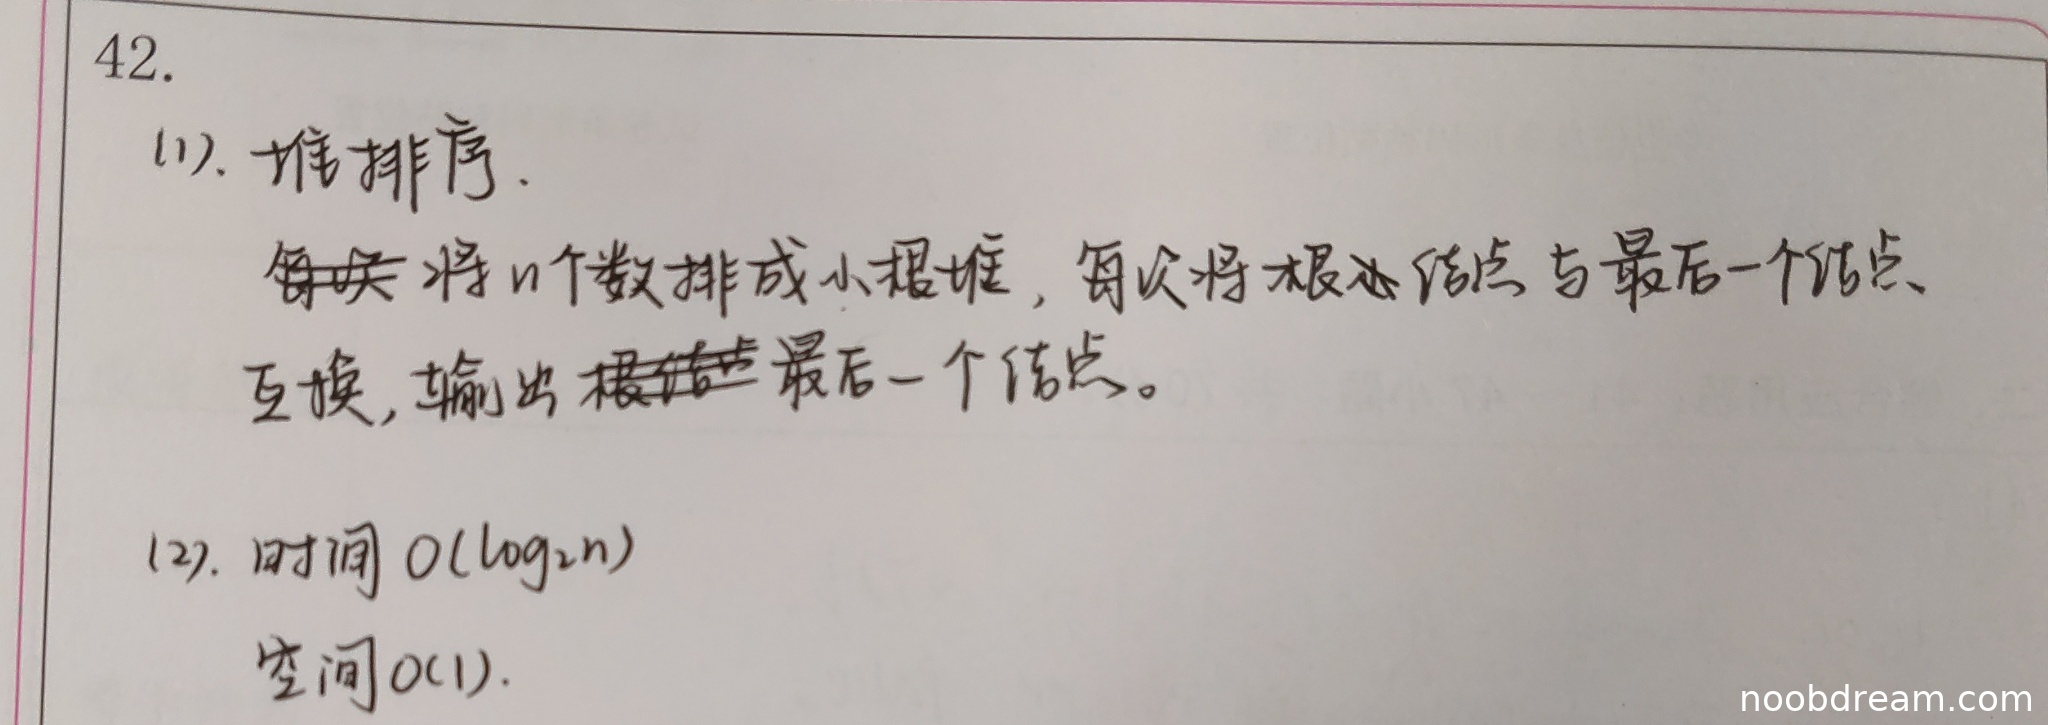 42.
(1). 堆排序.
将n个数排成小根堆, 每次将根结点与最后一个结点
互换, 输出最后一个结点。
(2). 时间 O(log₂n)
空间 O(1).
noobdream.com